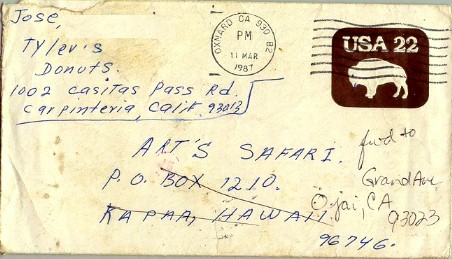 Jose,
Tyler's
Donuts.
1002 Casitas Pass Rd.
Carpinteria, Calif. 93013
OXNARD CA 930 B2
PM
11 MAR
1987
USA 22
ART'S SAFARI.
P.O. BOX 1210.
KAPAA, HAWAII.
96746.
fwd to
Grand Ave
Ojai, CA
93023